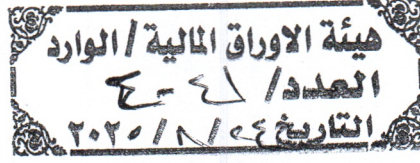 هيئة الاوراق المالية / الوارد
العدد/
التاريخ ٢٤ / ٨ / ٢٠٢٥